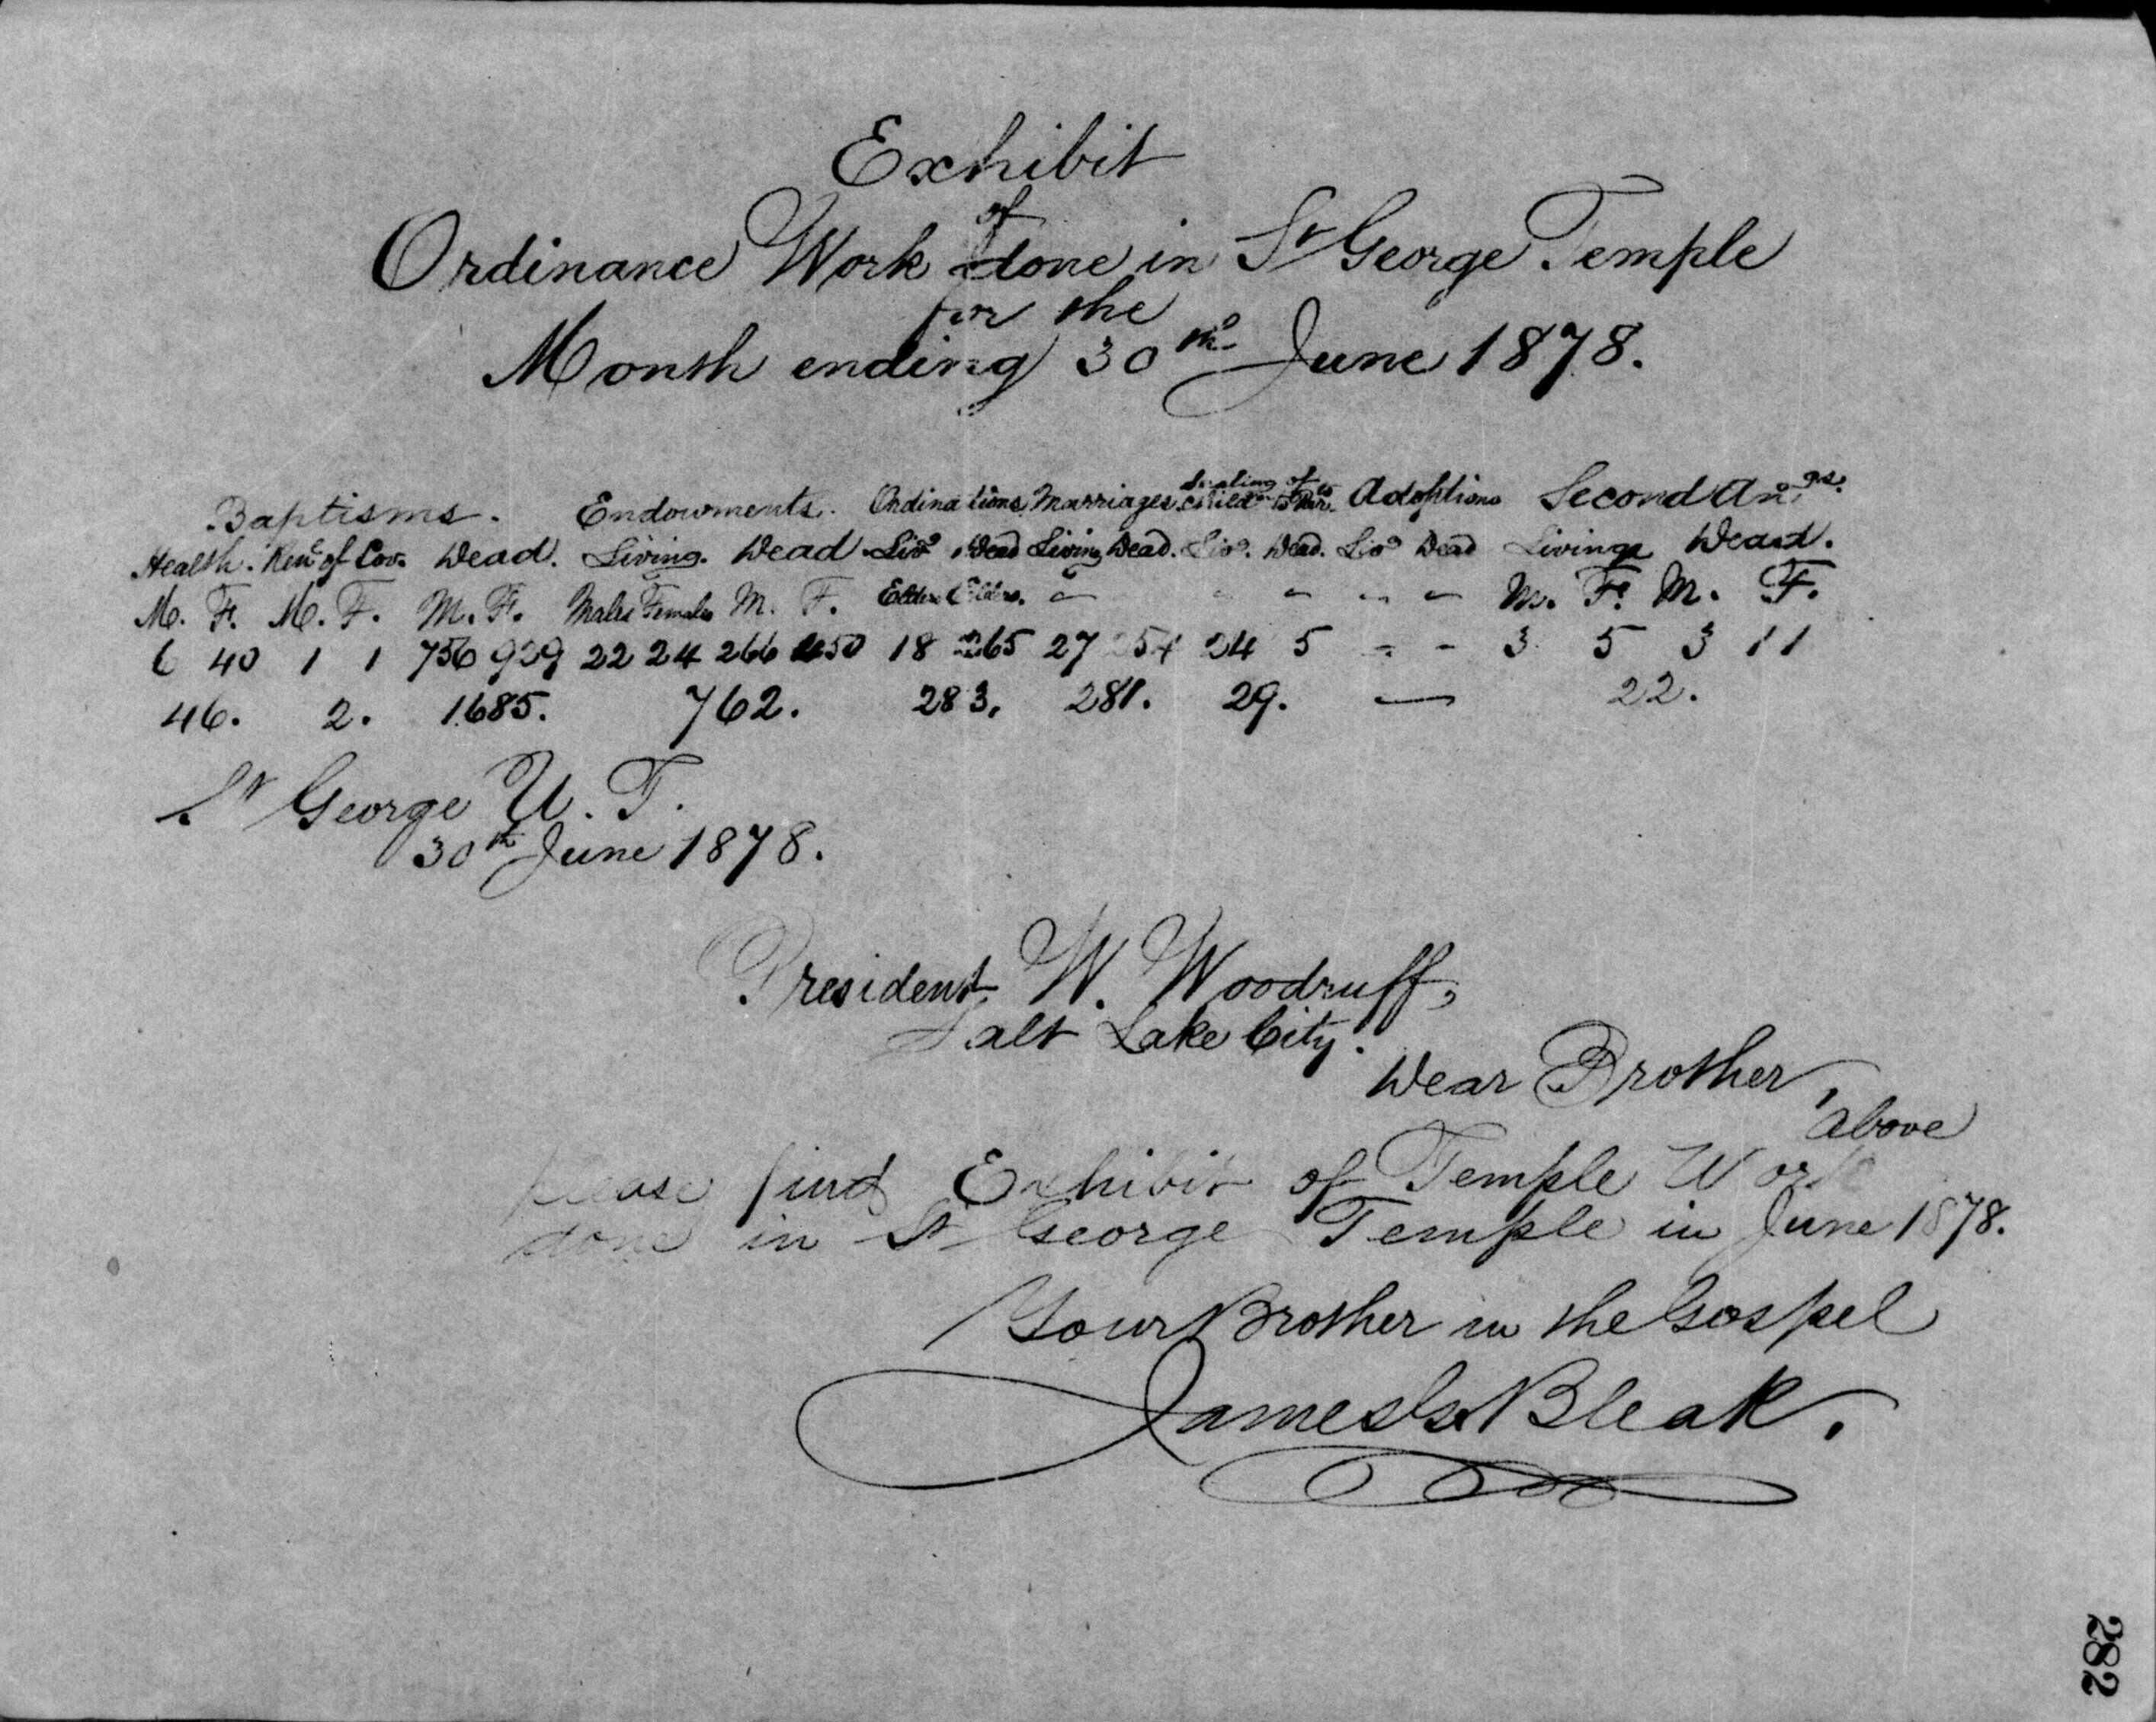 Exhibit
of
Ordinance Work done in St George Temple
for the
Month ending 30th June 1878.
Baptisms. Endowments. Ordinations, Marriages, Sealing of Childn to Par. Adoptions Second Angs.
Health. Renl of Cov. Dead. Living. Dead Livg Dead Living Dead. Livg. Dead. Livg Dead Living Dead.
M. F. M. F. M. F. Males Females M. F. Elders Elders. " " " " " M. F. M. F.
6 40 1 1 756 929 22 24 266 450 18 265 27 254 24 5 - - 3 5 3 11
46. 2. 1685. 762. 283, 281. 29. — 22.
St George U. T.
30th June 1878.
President W. Woodruff,
Salt Lake City.
Dear Brother,
above
please find Exhibit of Temple Work
done in St George Temple in June 1878.
Your Brother in the Gospel
James G. Bleak.
282